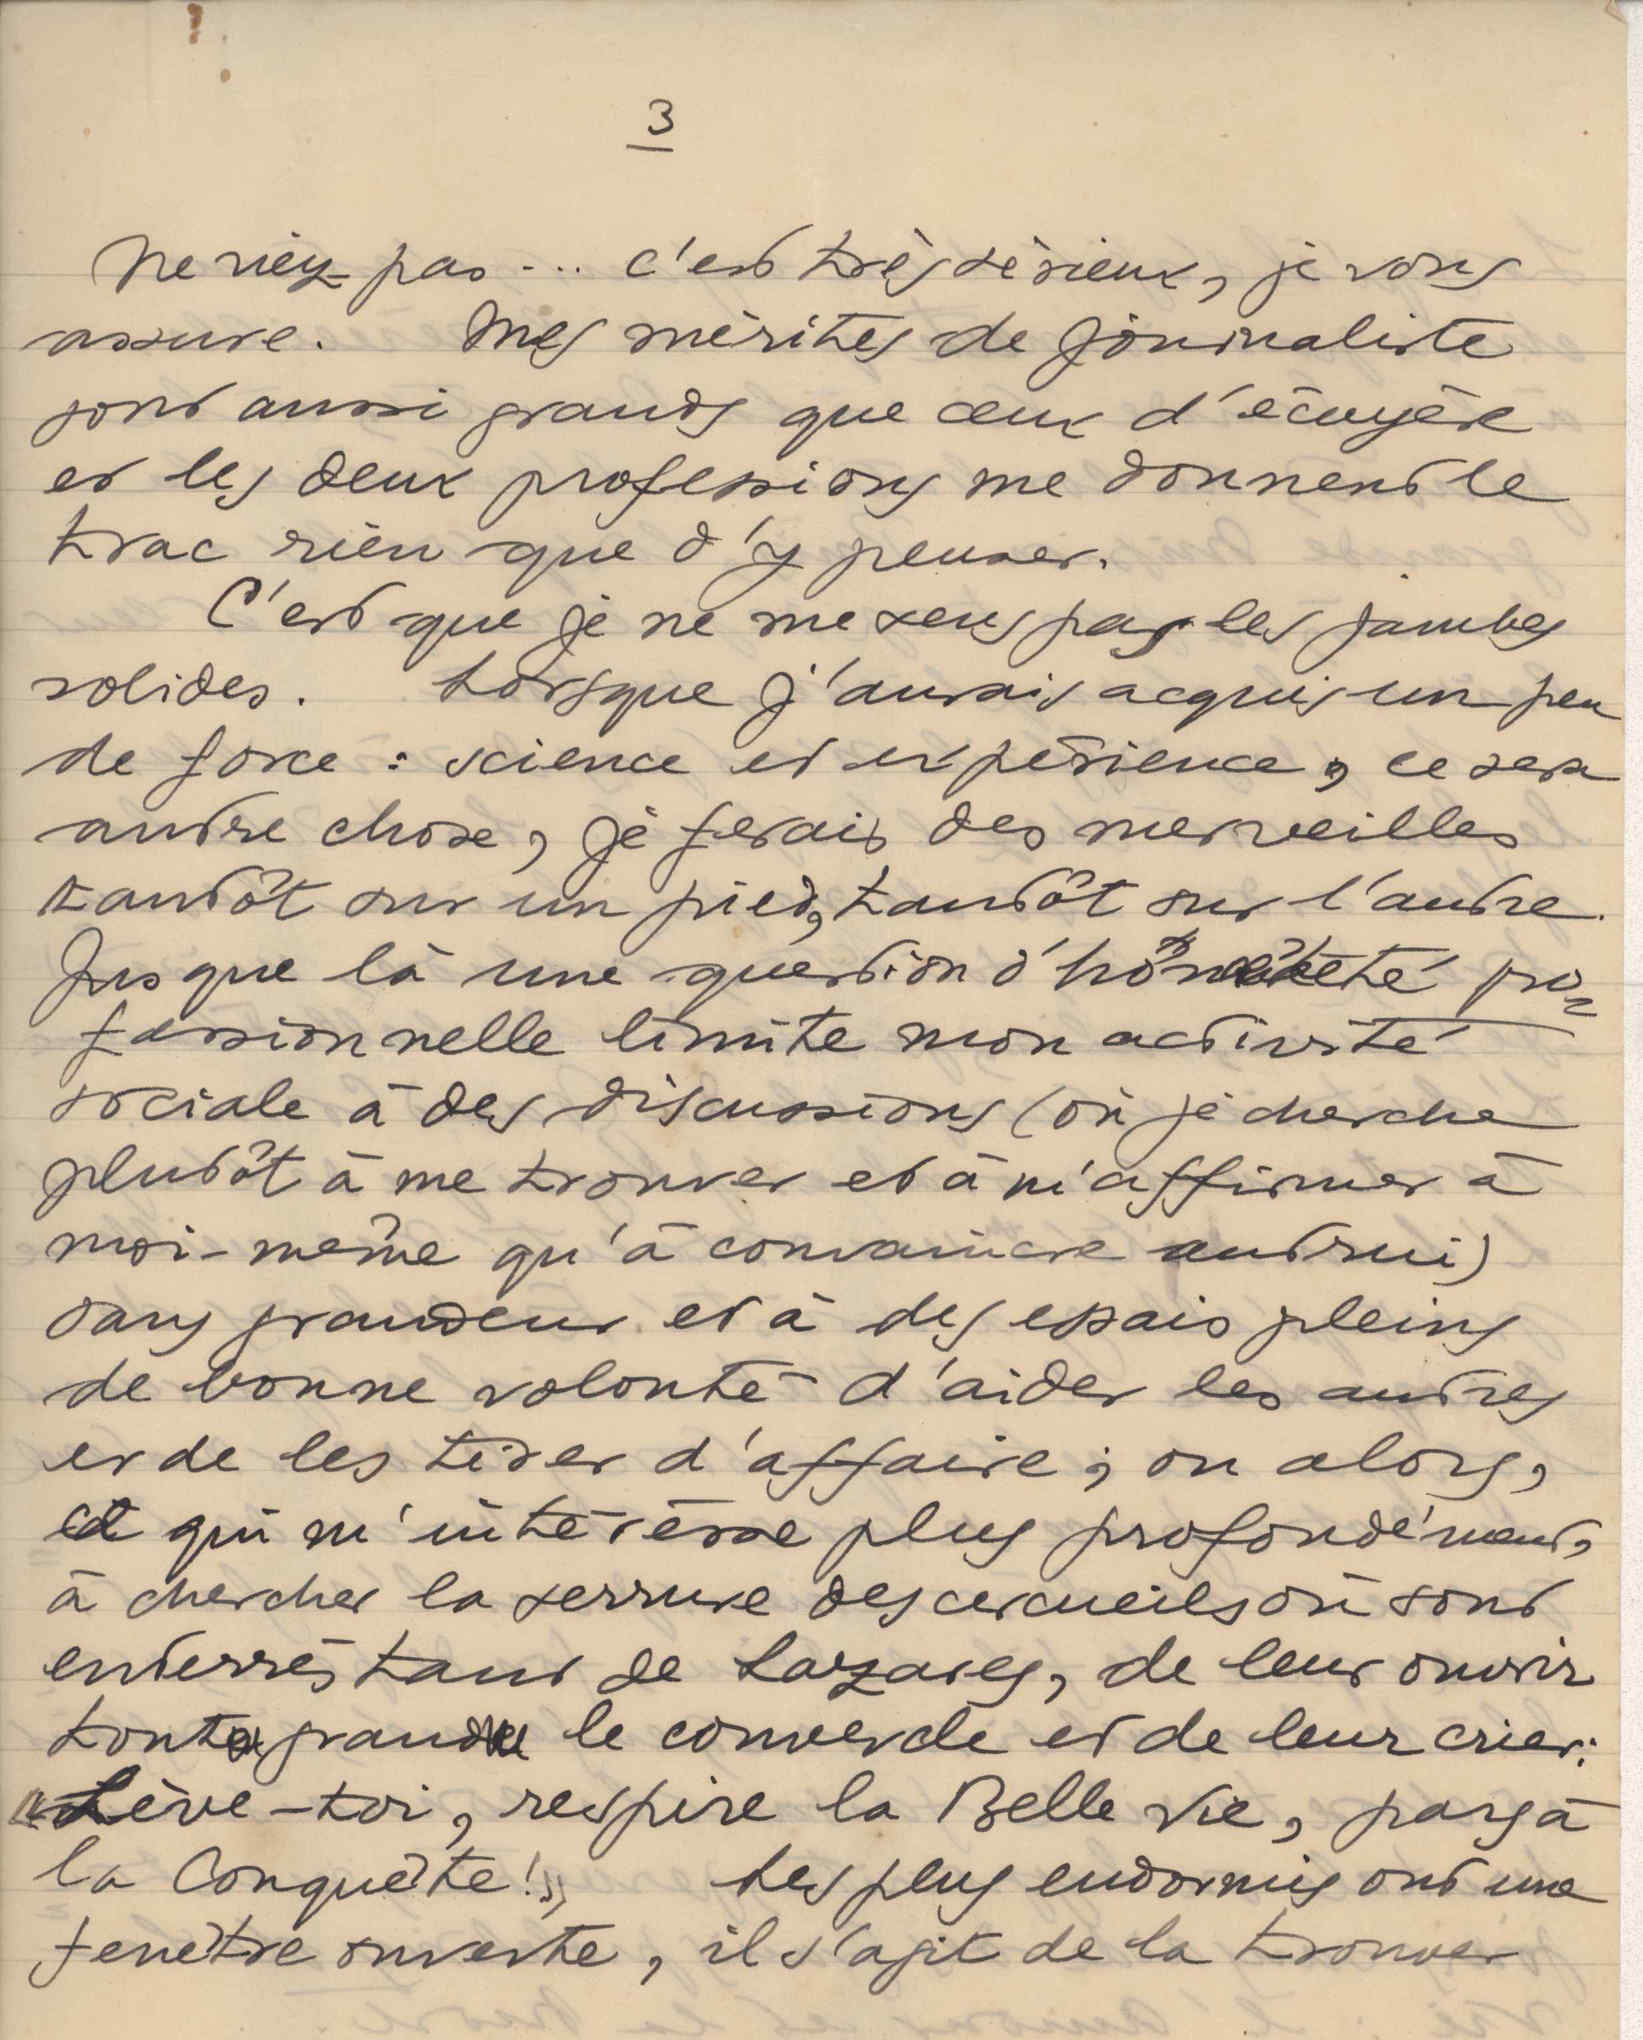 3
Ne riez pas... c'est très sérieux, je vous
assure. Mes mérites de journaliste
sont aussi grands que ceux d'écuyère
et les deux professions me donnent le
trac rien que d'y penser.
C'est que je ne me sens pas les jambes
solides. Lorsque j'aurais acquis un peu
de force : science et expérience, ce sera
autre chose, je ferais des merveilles
tantôt sur un pied, tantôt sur l'autre.
Jusque là une question d'honnêteté pro=
fessionnelle limite mon activité
sociale à des discussions (où je cherche
plutôt à me trouver et à m'affirmer à
moi-même qu'à convaincre autrui)
sans grandeur et à des essais pleins
de bonne volonté d'aider les autres
et de les tirer d'affaire ; ou alors,
ce qui m'intéresse plus profondément,
à chercher la serrure des cercueils où sont
enterrés tant de Lazares, de leur ouvrir
tout grand le couvercle et de leur crier:
"Lève-toi, respire la Belle Vie, pars à
la Conquête!" Les plus endormis ont une
fenêtre ouverte, il s'agit de la trouver